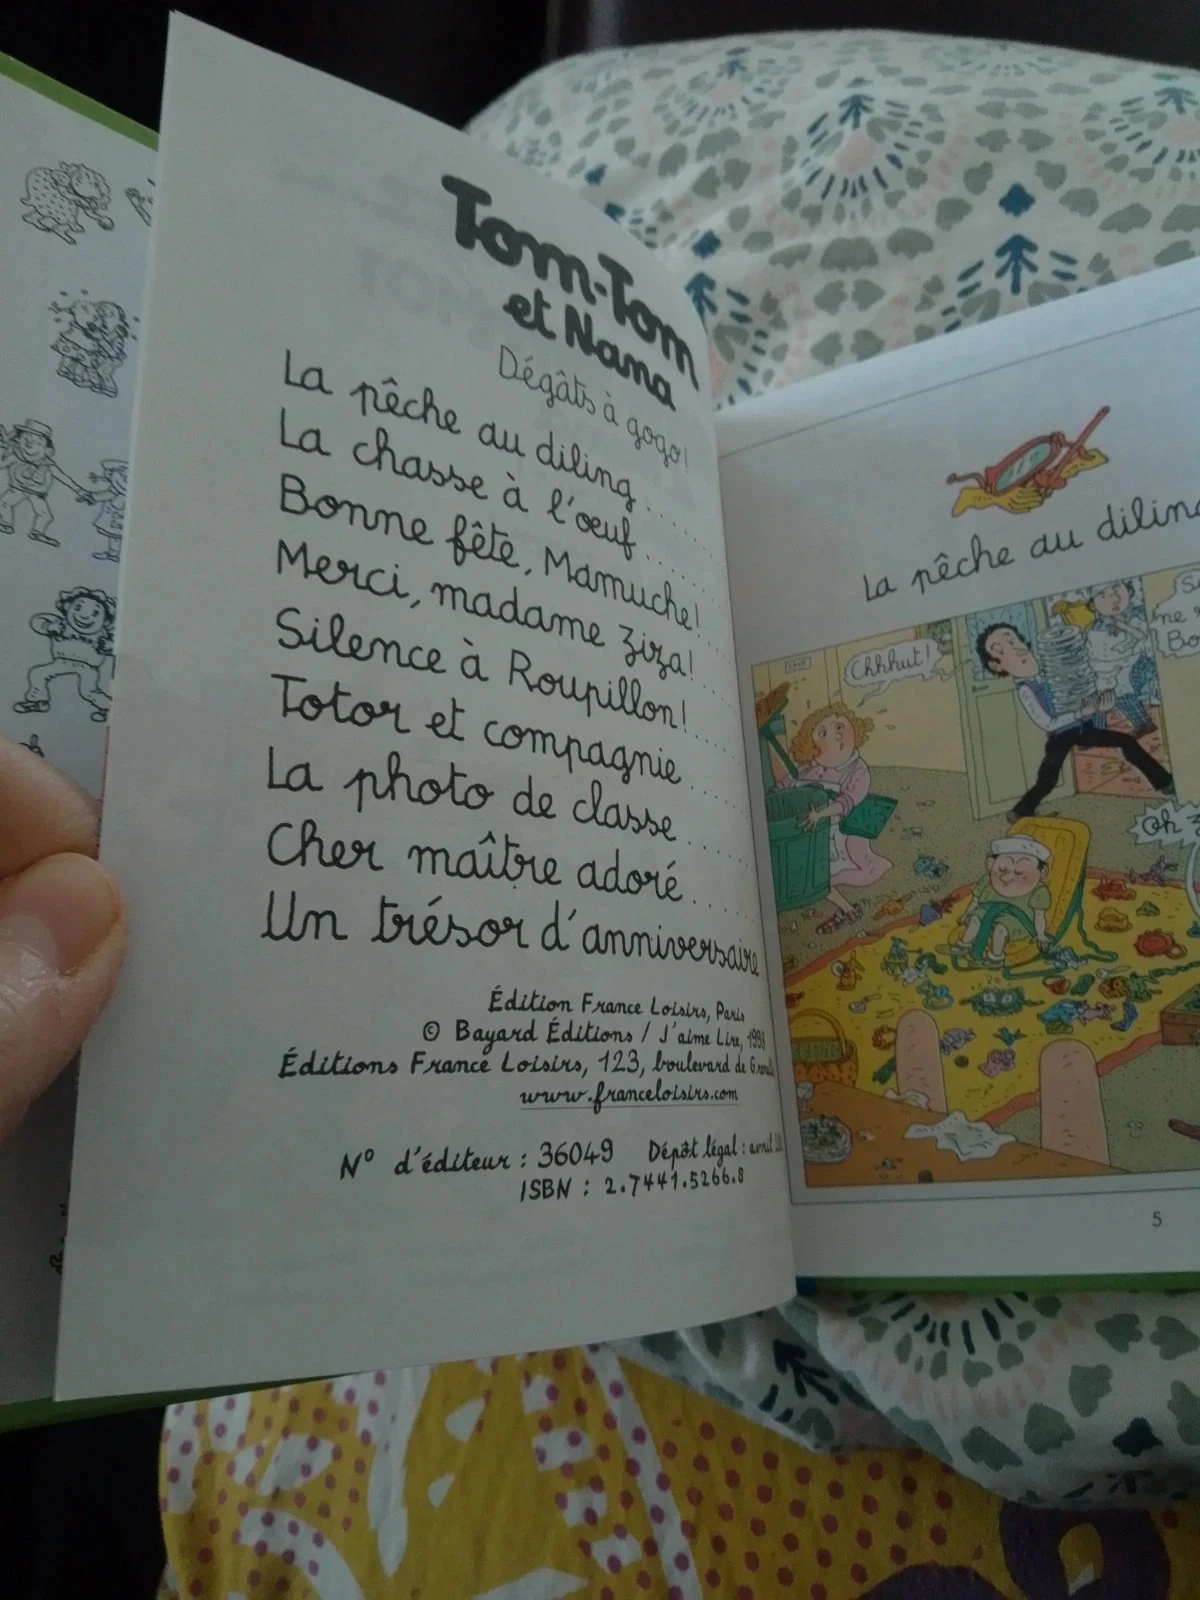 Tom-Tom
et Nana
Dégâts à gogo!
La pêche au diling.....
La chasse à l'œuf.....
Bonne fête, Mamuche!.....
Merci, madame Ziza!.....
Silence à Roupillon!.....
Totor et compagnie.....
La photo de classe.....
Cher maître adoré.....
Un trésor d'anniversaire
Édition France Loisirs, Paris
© Bayard Éditions / J'aime Lire,
Éditions France Loisirs, 123, boulevard de
www.franceloisirs.com
N° d'éditeur : 36049 Dépôt légal : avril
ISBN : 2.7441.5266.8
La pêche au
Chhhut!
ne
Oh
5